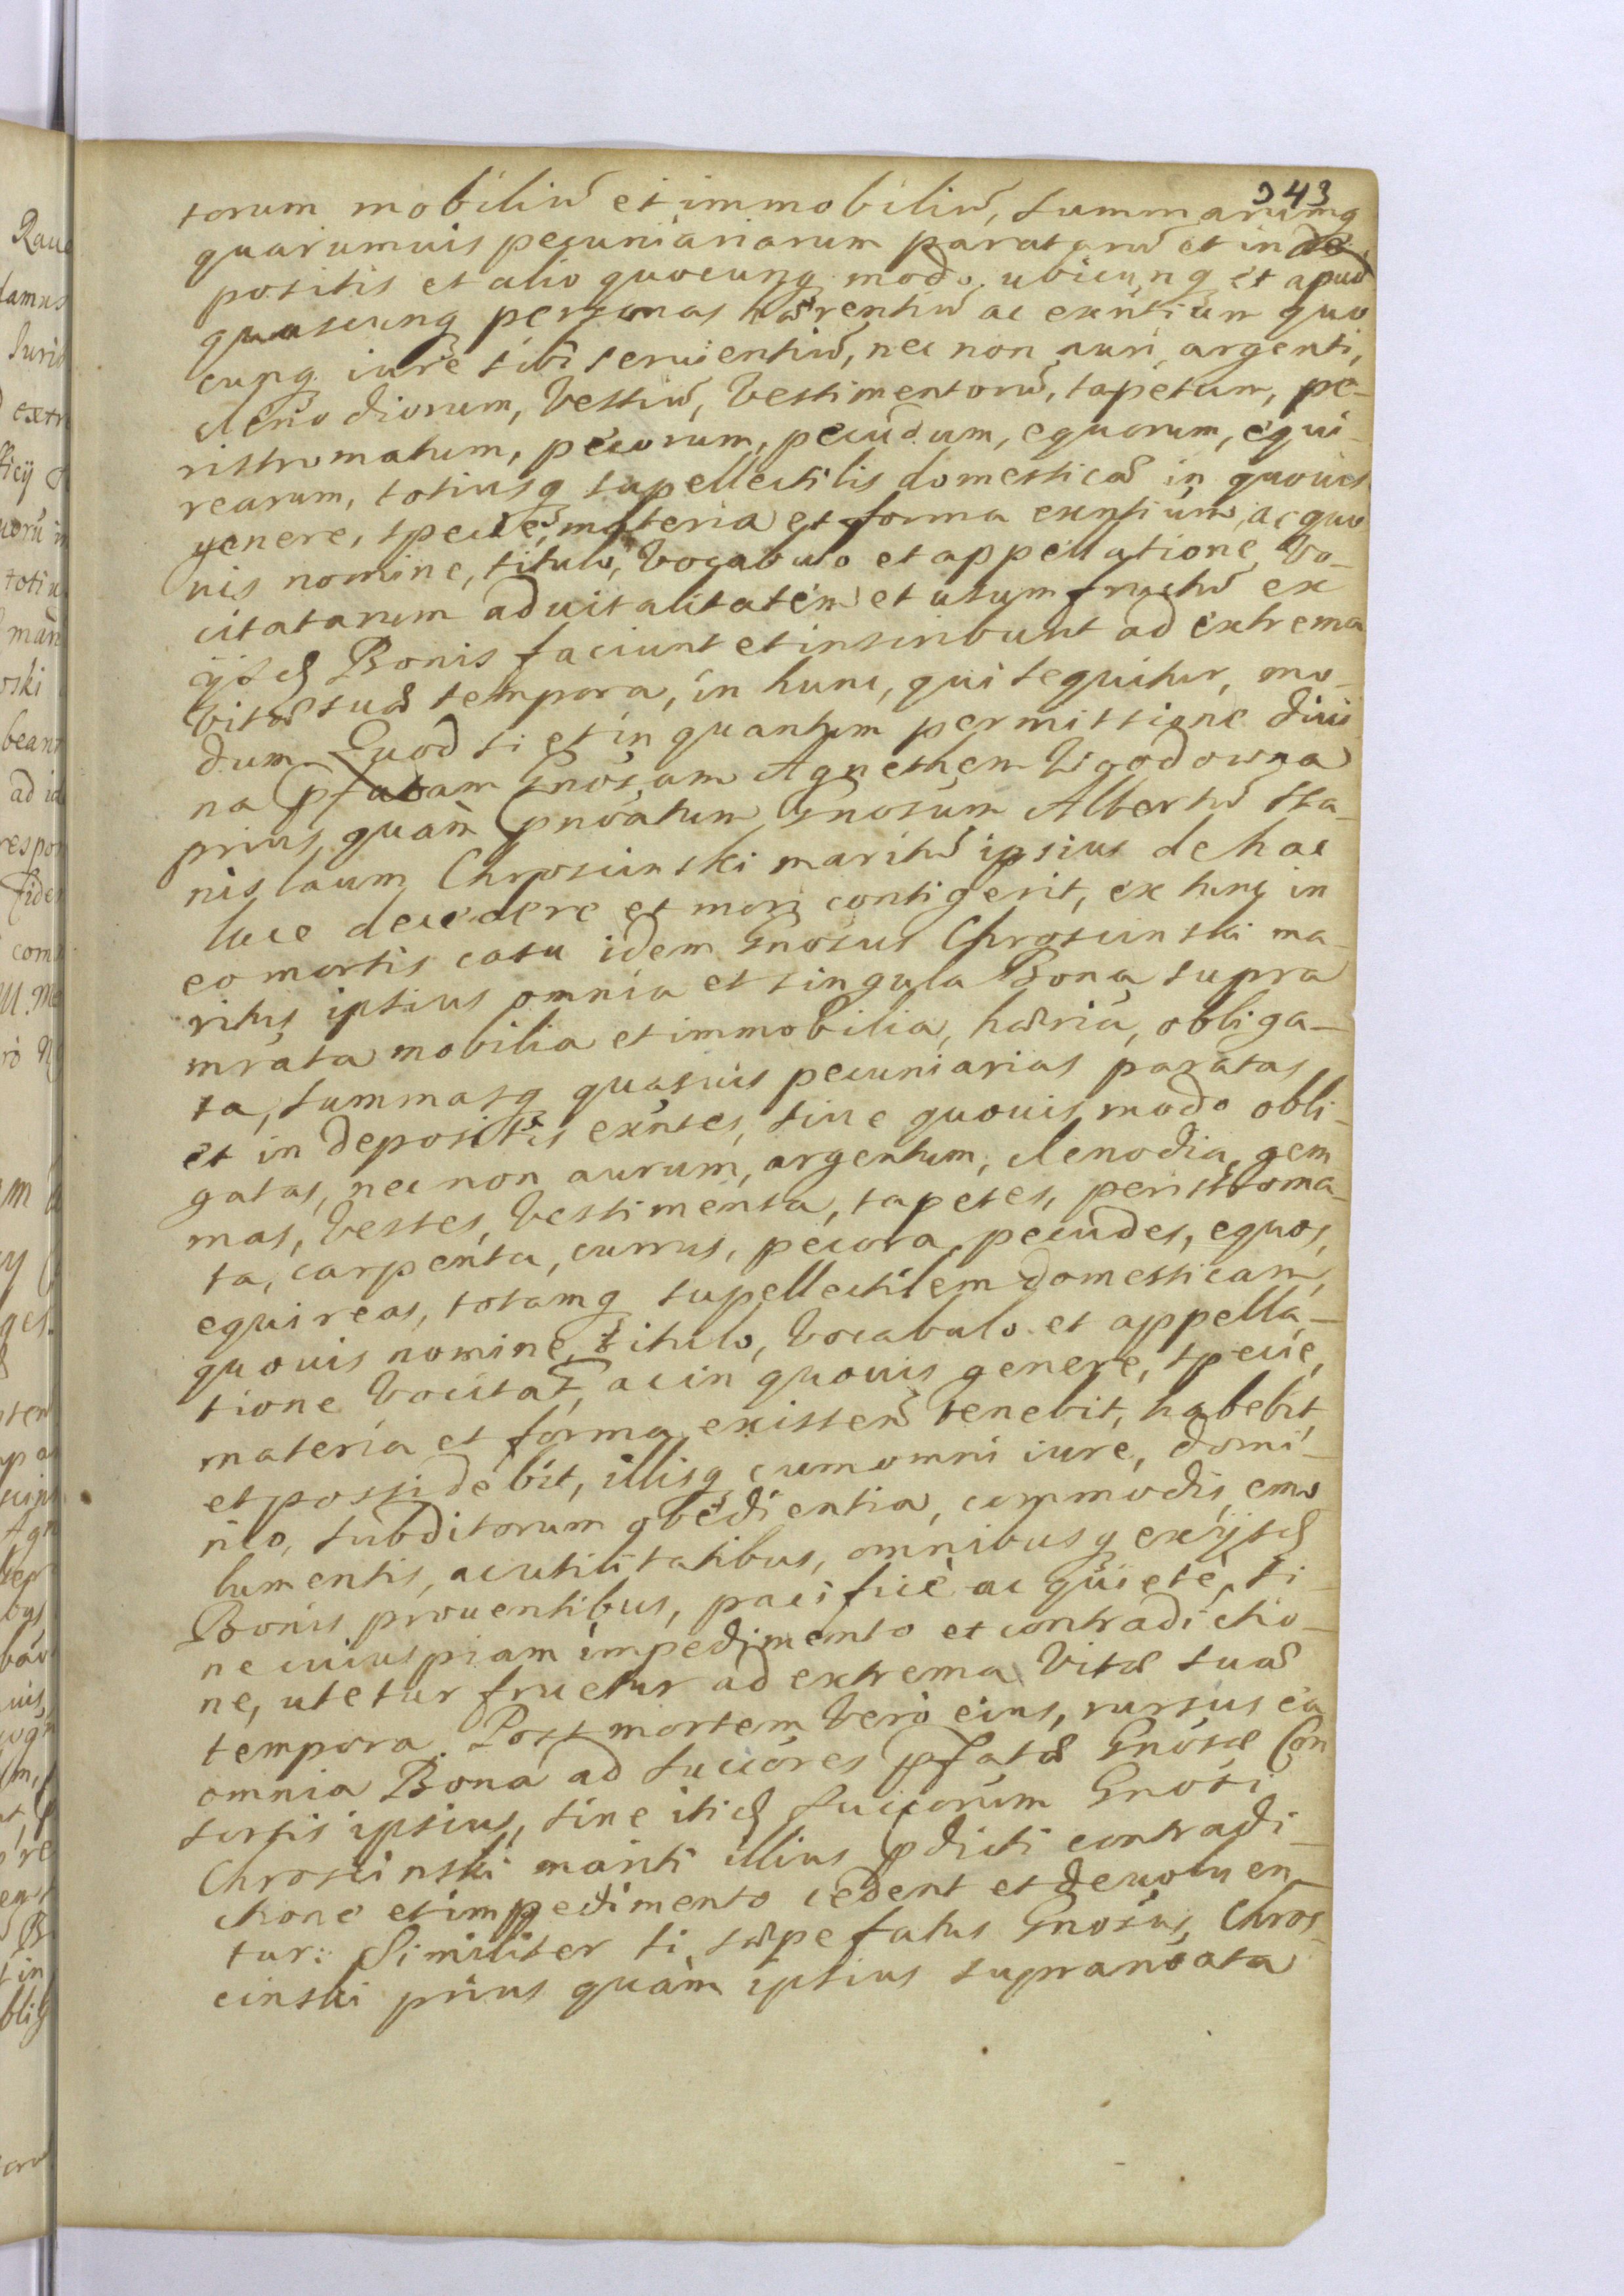 343
torum mobiliū et immobiliū, summarumq
quarumuis pecuniariarum paratarū et in de
positis et alio quocunq modo, ubicunq et apud
quascunq personas hærentiū ac exntium quo
cunq iure sibi seruientiū, nec non auri argenti,
clenodiorum, Vestiū, Vestimentorū, tapetum, pe-
ristromatum, pecorum, pecudum, equorum, equi-
rearum, totiusq supellectilis domesticæ in quouis
genere, specie, materia et forma exntium, ac quo
uis nomine, titulo, Vocabulo et appellatione Vo-
citatarum aduitalitatem et usumfructū ex
ijsd Bonis faciunt et inscribunt ad extrema
Vitæ suæ tempora, in hunc, qui sequitur, mo-
dum. Quod si et in quantum permissione diui
na pfatam Gnosam Agnethem
prius, quàm pnoatum Gnosum Albertū Sta-
nislaum Chrościnski maritū ipsius de hac
luce decedere et mori contigerit, ex tunc in
eo mortis casu idem Gnosus Chrościnski ma-
ritus ipsius omnia et singula Bona supra
mrata mobilia et immobilia, hæria, obliga-
ta, summasq quasuis pecuniarias paratas
et in depositis exntes, siue quouis modo obli-
gatas, nec non aurum, argentum, clenodia, gem
mas, Vestes, Vestimenta, tapetes, peristroma-
ta, carpenta, currus, pecora, pecudes, equos,
equireas, totamq supellectilem domesticam,
quouis nomine, titulo, Vocabulo et appella-
tione Vocitat, ac in quouis genere, specie,
materia et forma existeñ tenebit, habebit
et possidebit, illisq cum omni iure, domi-
nio, subditorum obedientia, commodis, emo
lumentis, ac utilitatibus, omnibusq ex ijsd
Bonis prouentibus, pacificè ac quietè, si-
ne cuiuspiam impedimento et contradictio-
ne, utetur fruetur ad extrema Vitæ suæ
tempora. Post mortem Verò eius, rursus ea
omnia Bona ad succores pfatæ Gnosæ Con
sortis ipsius, sine itid succorum Gnosi
Chrościnski mariti illius pdicti contradi-
ctione et impedimento cedent et deuoluen-
tur: Similiter si sæpefatus Gnosus Chros-
cinski prius quàm ipsius supranoata